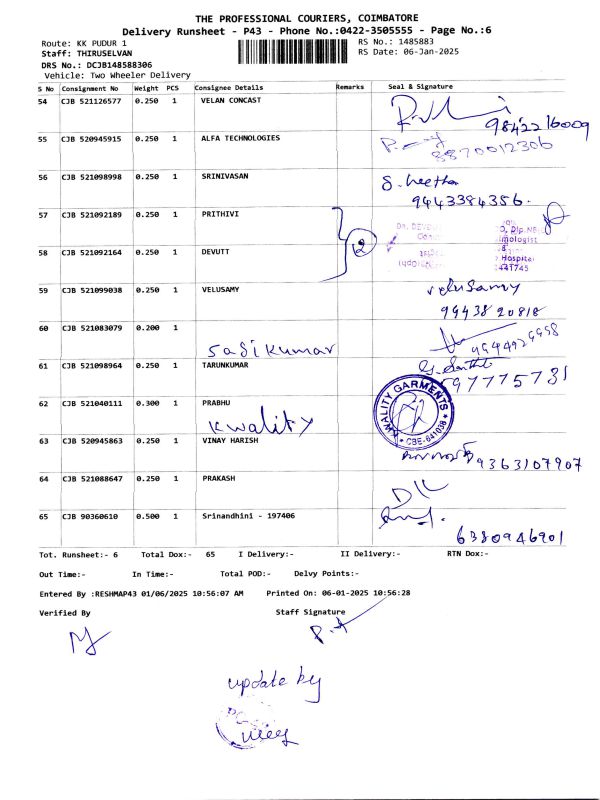 THE PROFESSIONAL COURIERS, COIMBATORE
Delivery Runsheet - P43 - Phone No.:0422-3505555 - Page No.:6
Route: KK PUDUR 1
RS No.: 1485883
Staff: THIRUSELVAN
RS Date: 06-Jan-2025
DRS No.: DCJB148588306
Vehicle: Two Wheeler Delivery
S No Consignment No Weight PCS Consignee Details Remarks Seal & Signature
54 CJB 521126577 0.250 1 VELAN CONCAST
9842216009
55 CJB 520945915 0.250 1 ALFA TECHNOLOGIES
8870012306
56 CJB 521098998 0.250 1 SRINIVASAN
9443384356.
57 CJB 521092189 0.250 1 PRITHIVI
2
58 CJB 521092164 0.250 1 DEVUTT
Hospital
59 CJB 521099038 0.250 1 VELUSAMY
velusamy
99438 20818
60 CJB 521083079 0.200 1
Sasikumar
61 CJB 521098964 0.250 1 TARUNKUMAR
62 CJB 521040111 0.300 1 PRABHU
Kwality
KWALITY GARMENTS
CBE-641038
63 CJB 520945863 0.250 1 VINAY HARISH
9363107907
64 CJB 521088647 0.250 1 PRAKASH
65 CJB 90360610 0.500 1 Srinandhini - 197406
6380946901
Tot. Runsheet:- 6 Total Dox:- 65 I Delivery:- II Delivery:- RTN Dox:-
Out Time:- In Time:- Total POD:- Delvy Points:-
Entered By :RESHMAP43 01/06/2025 10:56:07 AM Printed On: 06-01-2025 10:56:28
Verified By Staff Signature
update by